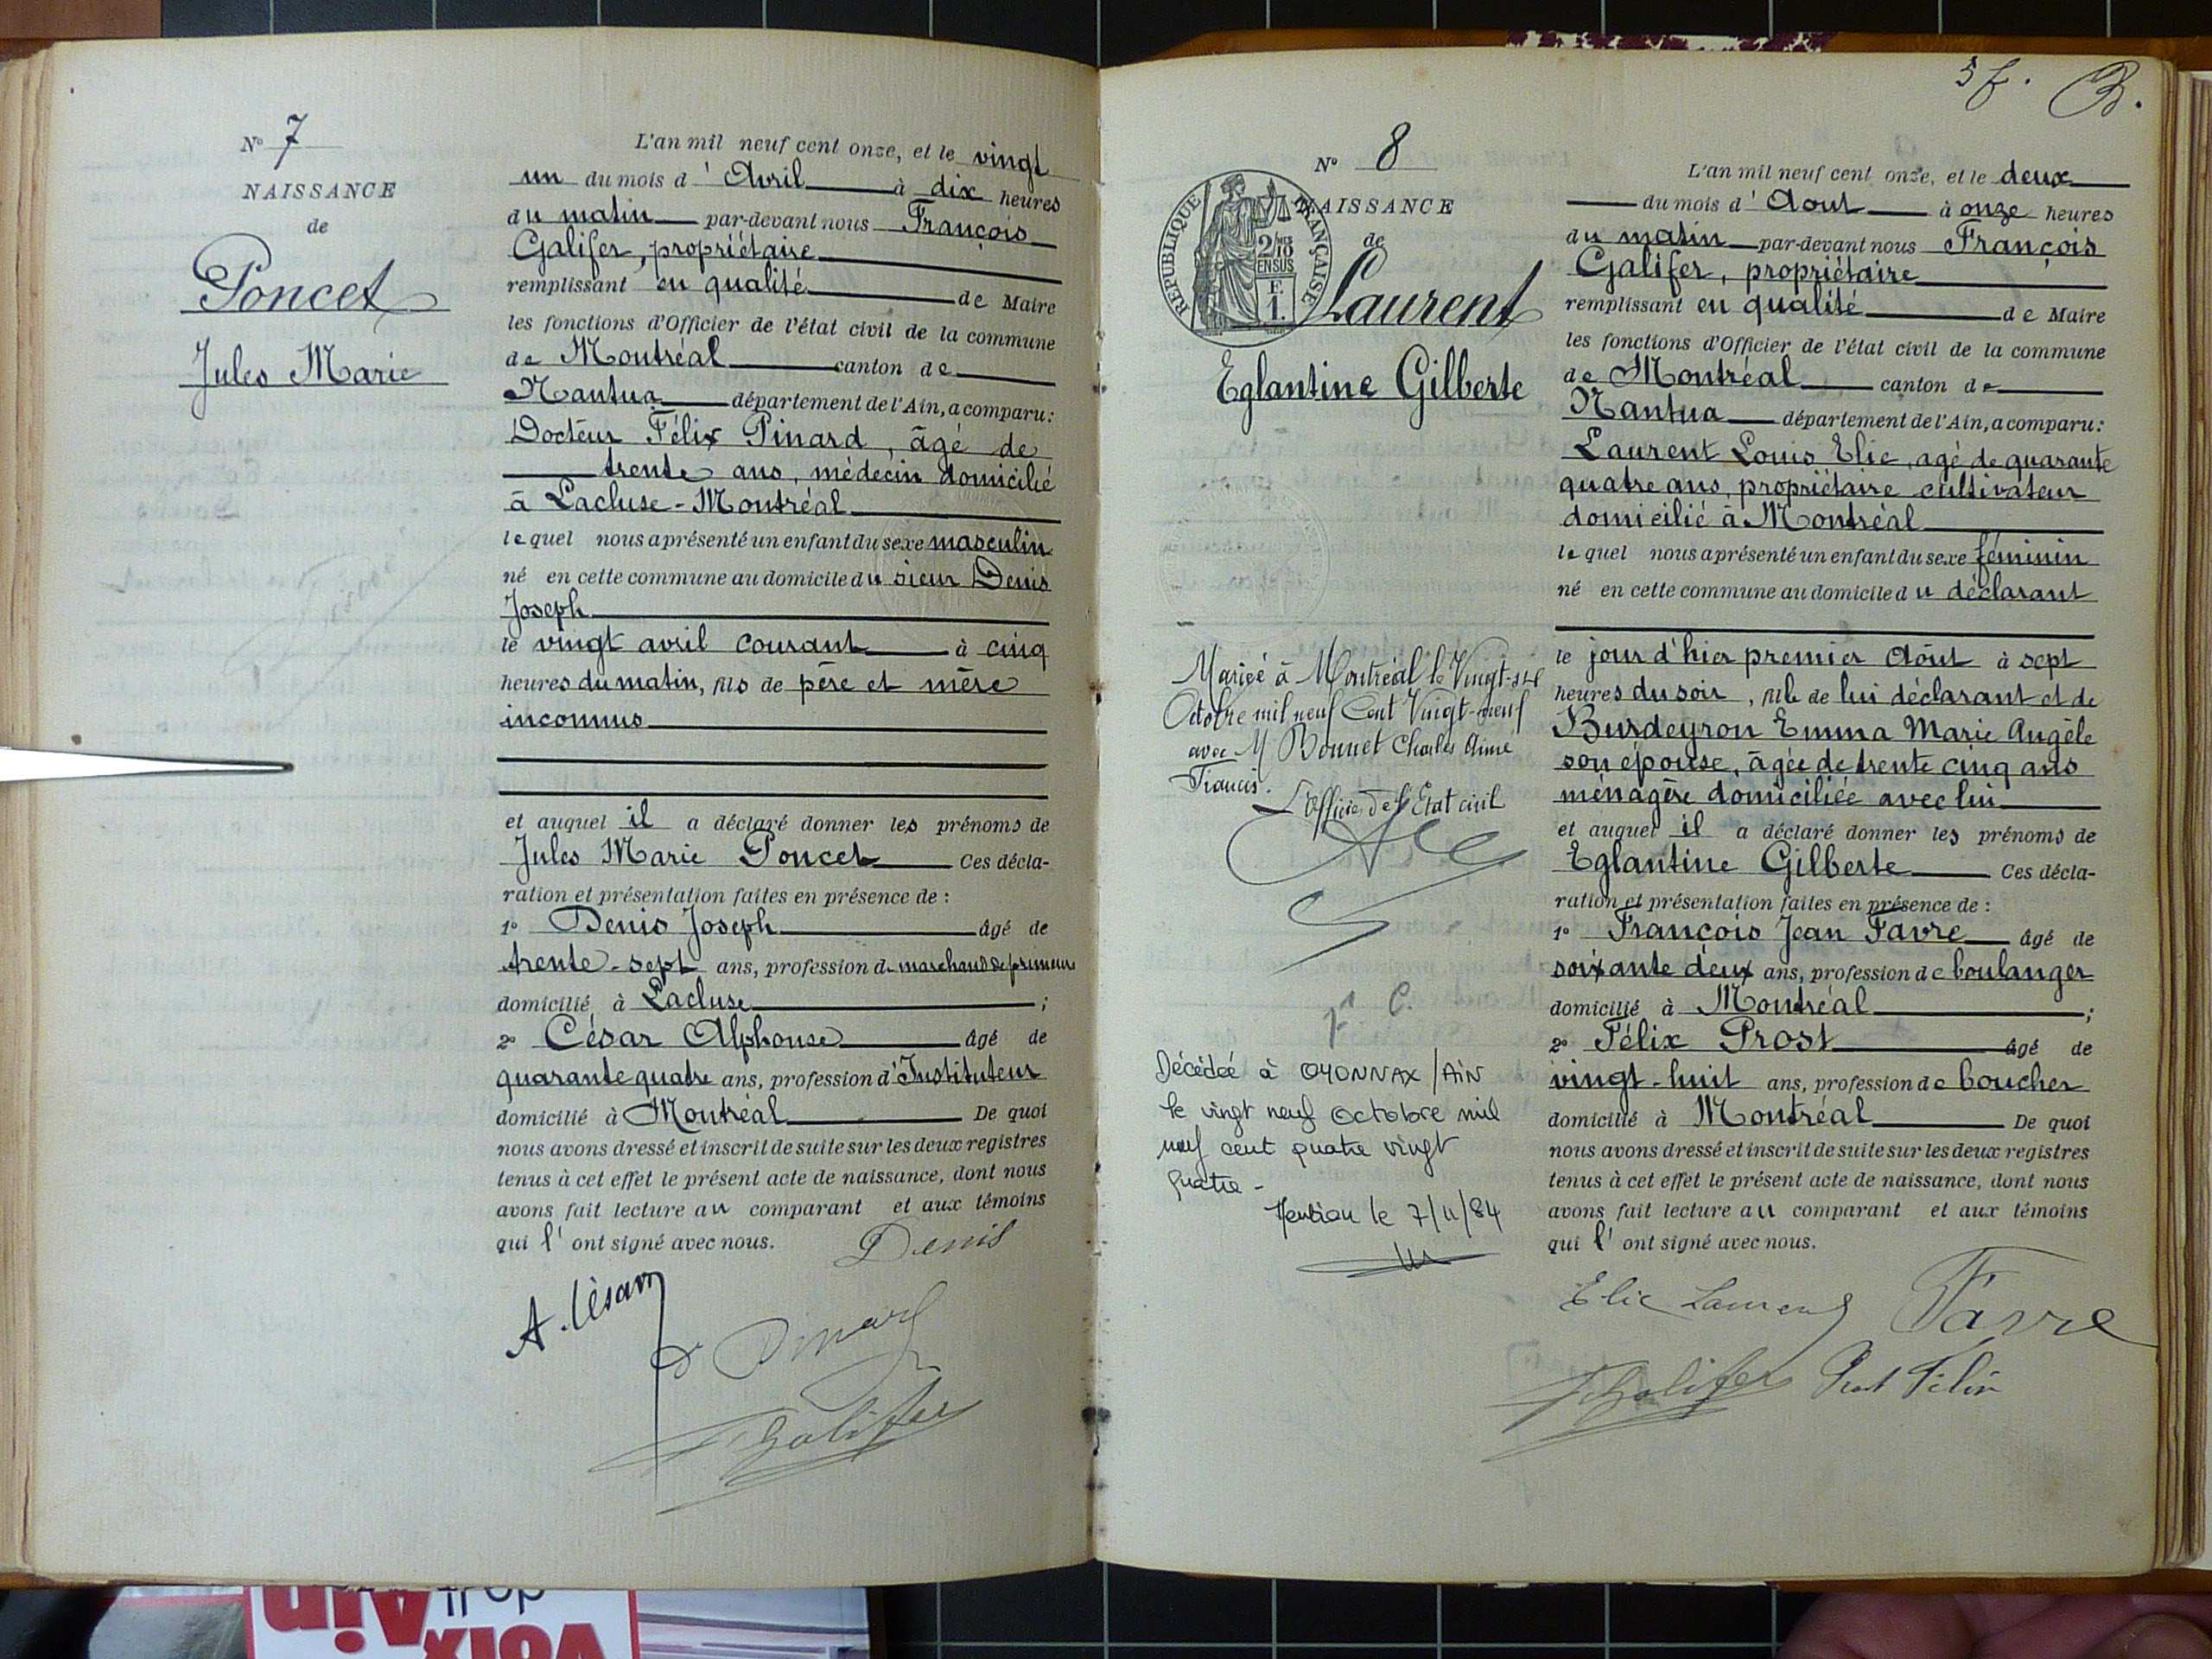 N° 7
NAISSANCE
de
Poncet
Jules Marie
L'an mil neuf cent onze, et le vingt
un du mois d' Avril à dix heures
du matin par-devant nous François
Galifer, propriétaire
remplissant en qualité de Maire
les fonctions d'Officier de l'état civil de la commune
de Montréal canton de
Nantua département de l'Ain, a comparu:
Docteur Félix Pinard, âgé de
trente ans, médecin domicilié
à Lacluse-Montréal
lequel nous a présenté un enfant du sexe masculin
né en cette commune au domicile du sieur Denis
Joseph
le vingt avril courant à cinq
heures du matin, fils de père et mère
inconnus
et auquel il a déclaré donner les prénoms de
Jules Marie Poncet Ces décla-
ration et présentation faites en présence de :
1° Denis Joseph âgé de
trente-sept ans, profession de marchand de primeurs
domicilié à Lacluse ;
2° César Alphonse âgé de
quarante quatre ans, profession d'Instituteur
domicilié à Montréal De quoi
nous avons dressé et inscrit de suite sur les deux registres
tenus à cet effet le présent acte de naissance, dont nous
avons fait lecture au comparant et aux témoins
qui l' ont signé avec nous.
Denis
A. César
Dr Pinard
Galifer
5 f.
N° 8
NAISSANCE
de
RÉPUBLIQUE FRANÇAISE
2/10
EN SUS
F.
1.
Laurent
Eglantine Gilberte
Mariée à Montréal le Vingt-six
Octobre mil neuf Cent Vingt-neuf
avec M Bonnet Charles Aimé
Francis.
L'officier de l'Etat civil
Décédée à OYONNAX /AIN
le vingt neuf Octobre mil
neuf cent quatre vingt
quatre -
Mention le 7/11/84
L'an mil neuf cent onze, et le deux
du mois d' Aout à onze heures
du matin par-devant nous François
Galifer, propriétaire
remplissant en qualité de Maire
les fonctions d'Officier de l'état civil de la commune
de Montréal canton de
Nantua département de l'Ain, a comparu:
Laurent Louis Elie, agé de quarante
quatre ans, propriétaire cultivateur
domicilié à Montréal
lequel nous a présenté un enfant du sexe féminin
né en cette commune au domicile du déclarant
le jour d'hier premier Août à sept
heures du soir, fille de lui déclarant et de
Burdeyron Emma Marie Angèle
son épouse, âgée de trente cinq ans
ménagère domiciliée avec lui
et auquel il a déclaré donner les prénoms de
Eglantine Gilberte Ces décla-
ration et présentation faites en présence de :
1° François Jean Favre âgé de
soixante deux ans, profession de boulanger
domicilié à Montréal ;
2° Félix Prost âgé de
vingt-huit ans, profession de boucher
domicilié à Montréal De quoi
nous avons dressé et inscrit de suite sur les deux registres
tenus à cet effet le présent acte de naissance, dont nous
avons fait lecture au comparant et aux témoins
qui l' ont signé avec nous.
Elie Laurent Favre
Galifer Prost Félix
VOIX
Ain